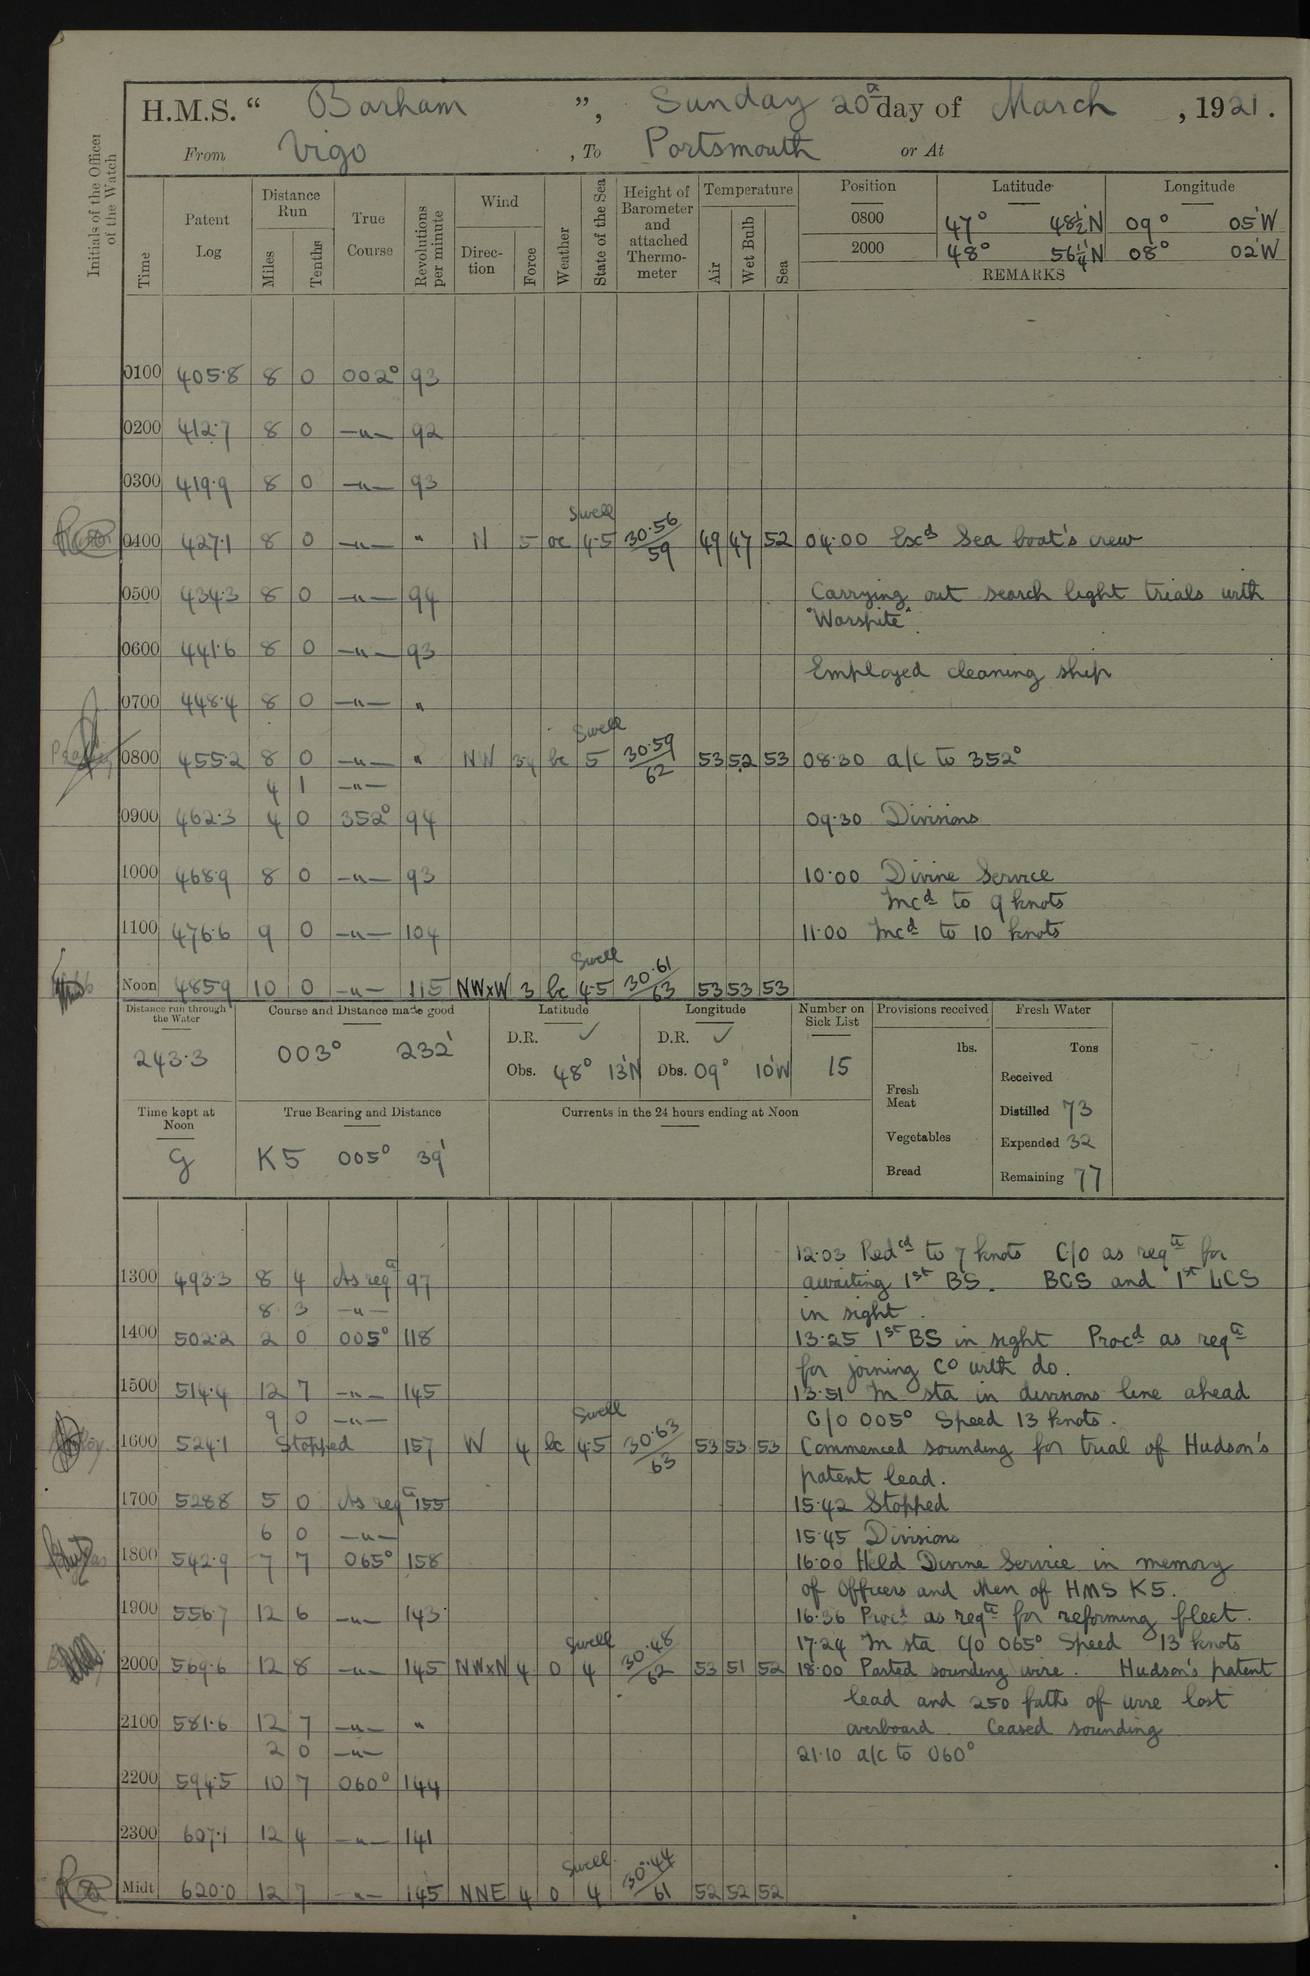 H.M.S. " Barham ", Sunday 20th day of March, 1921.
From Vigo, To Portsmouth or At
Initials of the Officer of the Watch
Time
Patent Log
Distance Run
Miles
Tenths
True Course
Revolutions per minute
Wind
Direction
Force
Weather
State of the Sea
Height of Barometer and attached Thermometer
Temperature
Air
Wet Bulb
Sea
Position Latitude Longitude
0800 47° 48½'N 09° 05'W
2000 48° 56¼'N 08° 02'W
REMARKS
0100 405.8 8 0 002° 93
0200 412.7 8 0 —"— 92
0300 419.9 8 0 —"— 93
Swell
0400 427.1 8 0 —"— " N 5 oc 4.5 30.56/59 49 47 52 04.00 Exd Sea boat's crew
0500 434.3 8 0 —"— 94 Carrying out search light trials with
"Warspite".
0600 441.6 8 0 —"— 93
Employed cleaning ship
0700 448.4 8 0 —"— "
Swell
0800 455.2 8 0 —"— " NW 34 bc 5 30.59/62 53 52 53 08.30 a/c to 352°
4 1 —"—
0900 462.3 4 0 352° 94 09.30 Divisions
1000 468.9 8 0 —"— 93 10.00 Divine Service
Incd to 9 knots
1100 476.6 9 0 —"— 104 11.00 Incd to 10 knots
Swell
Noon 485.9 10 0 —"— 115 NWxW 3 bc 4.5 30.61/63 53 53 53
Distance run through the Water
243.3
Course and Distance made good
003° 232'
Latitude
D.R. ✓
Obs. 48° 13'N
Longitude
D.R. ✓
Obs. 09° 10'W
Number on Sick List
15
Provisions received
lbs.
Fresh Meat
Vegetables
Bread
Fresh Water
Tons
Received
Distilled 73
Expended 32
Remaining 77
Time kept at Noon
G
True Bearing and Distance
K5 005° 39'
Currents in the 24 hours ending at Noon
12.03 Redcd to 7 knots C/o as reqte for
1300 493.3 8 4 As reqte 97 awaiting 1st BS. BCS and 1st LCS
8 3 —"— in sight.
1400 502.2 2 0 005° 118 13.25 1st BS in sight Procd as reqte
for joining Co with do.
1500 514.4 12 7 —"— 145 13.51 In sta in divisions line ahead
9 0 —"— C/o 005° Speed 13 knots.
Swell
1600 524.1 Stopped 157 W 4 bc 4.5 30.63/63 53 53 53 Commenced sounding for trial of Hudson's
patent lead.
1700 528.8 5 0 As reqte 155 15.42 Stopped
6 0 —"— 15.45 Divisions
1800 542.9 7 7 065° 158 16.00 Held Divine Service in memory
of Officers and Men of HMS K5.
1900 556.7 12 6 —"— 143 16.36 Procd as reqte for reforming fleet.
17.24 In sta C/o 065° Speed 13 knots
Swell
2000 569.6 12 8 —"— 145 NWxN 4 o 4 30.48/62 53 51 52 18.00 Parted sounding wire. Hudson's patent
lead and 250 faths of wire lost
2100 581.6 12 7 —"— " overboard. Ceased sounding
2 0 —"— 21.10 a/c to 060°
2200 594.5 10 7 060° 144
2300 607.1 12 4 —"— 141
Swell
Midt 620.0 12 7 —"— 145 NNE 4 o 4 30.44/61 52 52 52